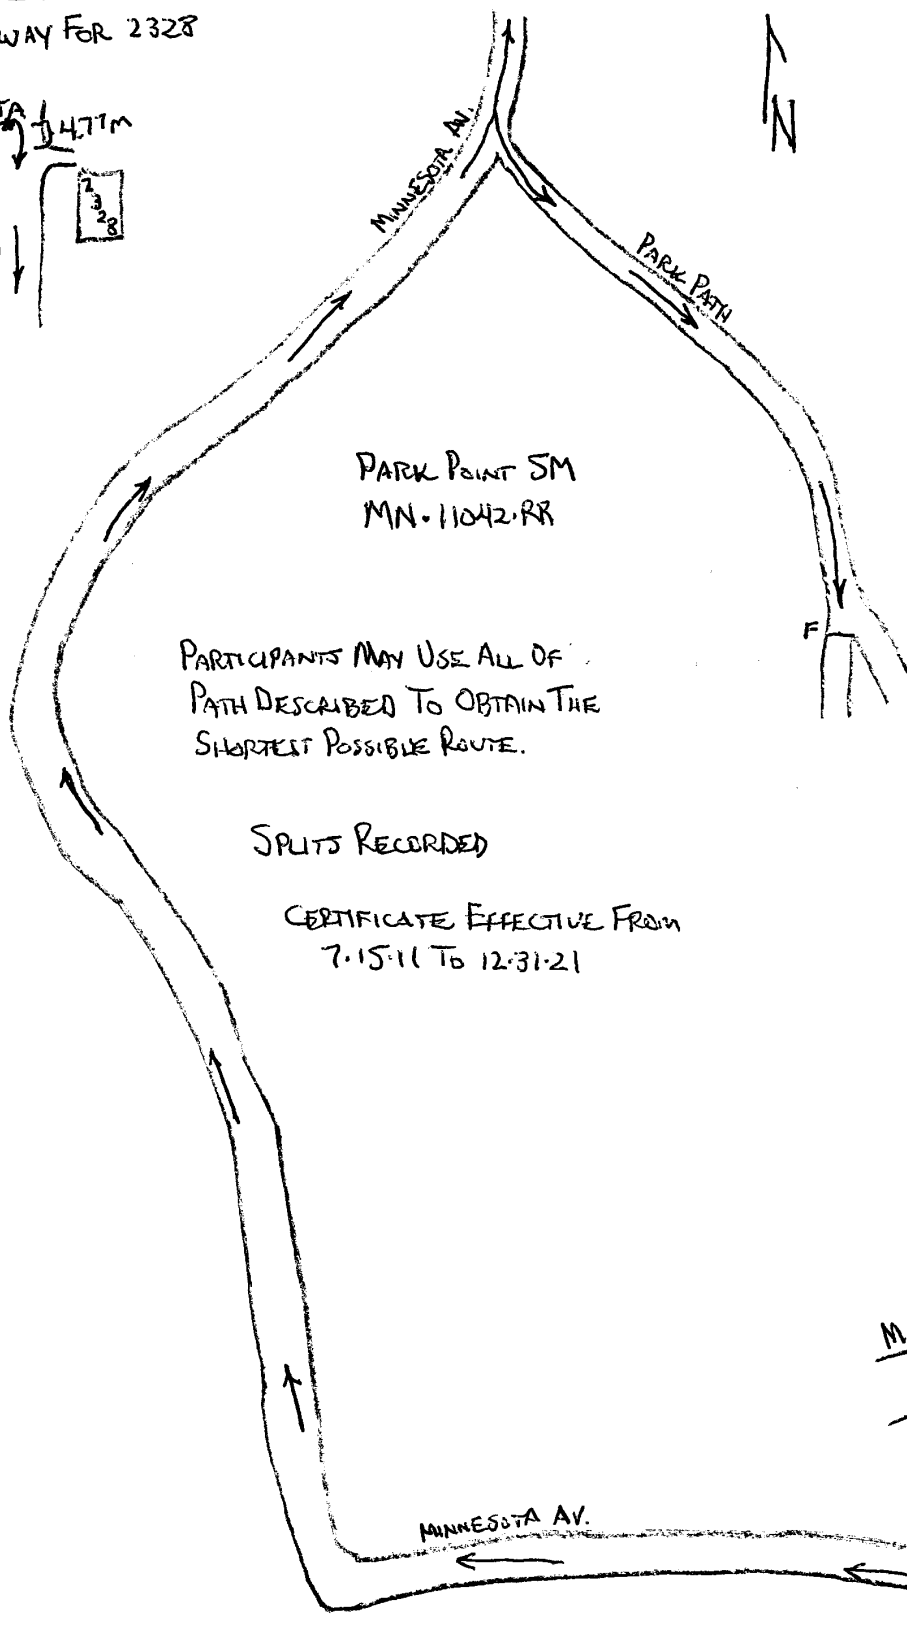 WAY FOR 2328
TA
4.77M
2
3
2
8
N
MINNESOTA AV.
PARK PATH
PARK POINT 5M
MN.11042.RR
F
PARTICIPANTS MAY USE ALL OF
PATH DESCRIBED TO OBTAIN THE
SHORTEST POSSIBLE ROUTE.
SPLITS RECORDED
CERTIFICATE EFFECTIVE FROM
7.15.11 TO 12.31.21
M
MINNESOTA AV.